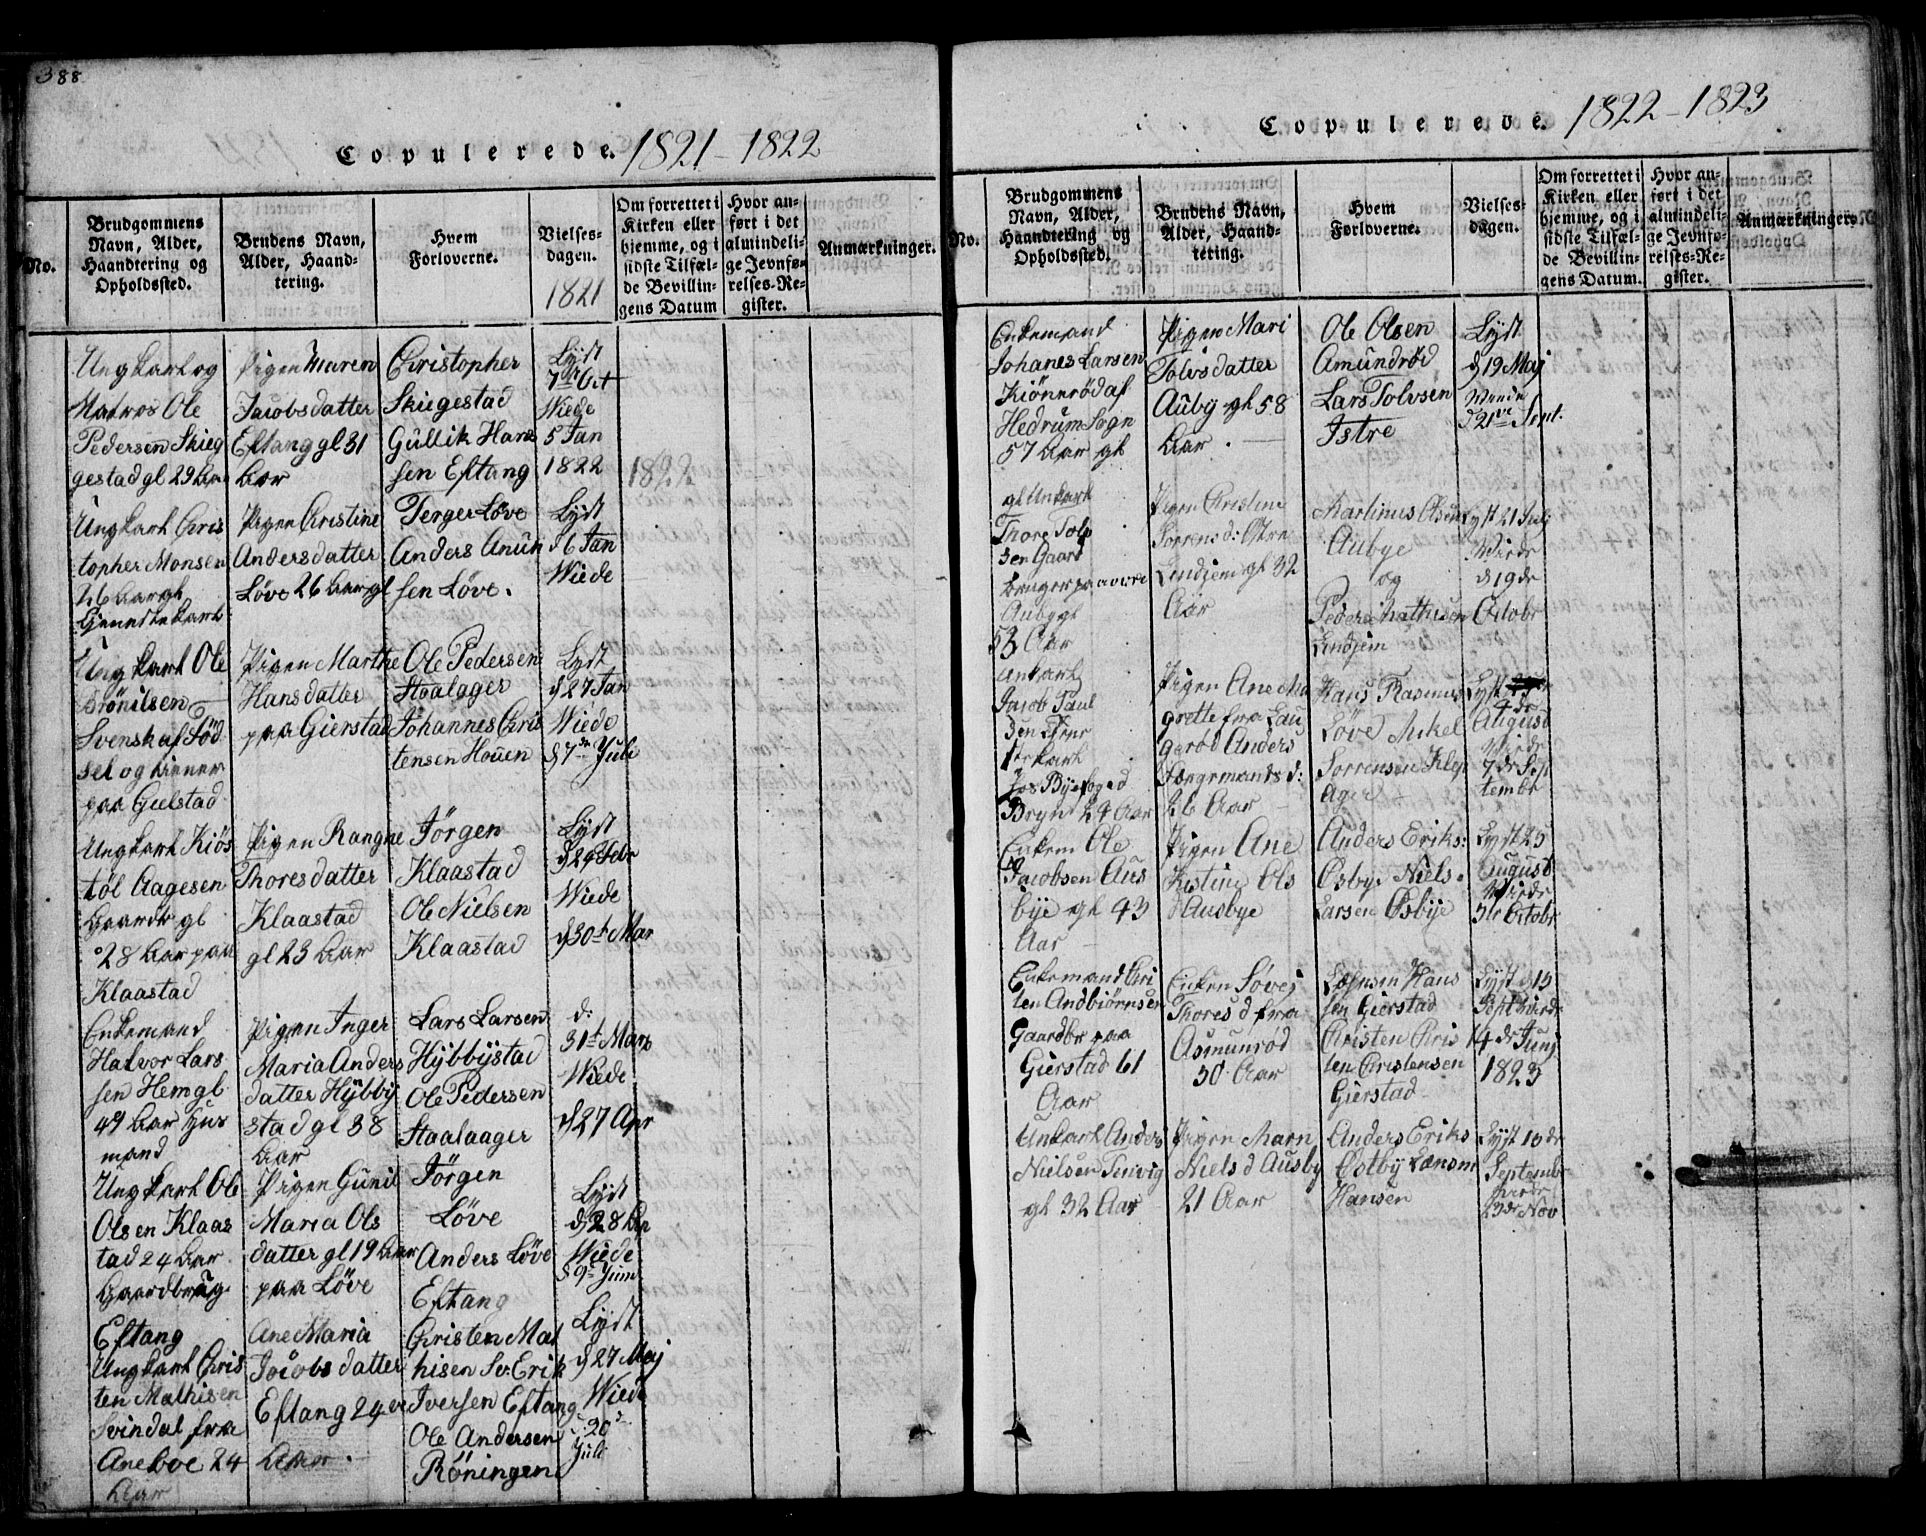 388
Copulerede. 1821-1822
No.
Brudgommens
Navn, Alder,
Haandtering og
Opholdssted.
Brudens Navn,
Alder, Haand-
tering.
Hvem
Forloverne.
Vielses-
dagen.
1821
Om forrettet i
Kirken eller
hjemme, og i
sidste Tilfæl-
de Bevillin-
gens Datum
Hvor an-
ført i det
almindeli-
ge Jevnfø-
relses-Re-
gister.
Anmærkninger.
Ungkarl og
Matros Ole
Pedersen Skieg
gestad gl 29 Aar
Pigen Maren
Jacobsdatter
Eftang gl 31
Aar
Christopher
Skiegestad
Gullik Han
sen Eftang
Lyst
7de Oct
Wiede
5 Jan
1822
1822
Ungkarl Chris
topher Monsen
26 Aar gl
Pigen Christine
Andersdatter
Løve 26 Aar gl
Terger Løve
Anders Anun
sen Løve.
Lyst
d 6 Jan
Wiede
Ungkarl Ole
Svensk af Fød
sel og tiener
paa Gielstad
Pigen Marthe
Hansdatter
paa Gierstad
Ole Pedersen
Staalager
Johannes Chris
tensen Houen
Lyst
d 27 Jan
Wiede
d 7de Juli
Ungkarl Kiøs
tøl Aagesen
Gaardr gl
28 Aar paa
Klaastad
Pigen Rangne
Thoresdatter
Klaastad
gl 23 Aar
Jørgen
Klaastad
Ole Nielsen
Klaastad
Lyst
d 24 Febr
Wiede
d 30t Mar
Enkemand
Halvor Lars
sen Hem gl
49 Aar Hus
mand
Pigen Inger
Maria Anders
datter Hÿbbÿ
stad gl 38
Aar
Lars Larsen
Hÿbbÿstad
Ole Pedersen
Staalaager
d:
31t Mars
Wiede
d 27 Apr
Ungkarl Ole
Olsen Klaas
tad 24 Aar
Gaardbrug
Eftang
Pigen Gunil
Maria Ols
datter gl 19 Aar
paa Løve
Jørgen
Løve
Anders Løve
Eftang
Lyst
d 28
Wiede
d 9 Juni
Ungkarl Chris
ten Mathisen
Svindal fra
Aneboe 24
Aar
Ane Maria
Jacobsdatter
Eftang 24
Aar.
Christen Mat
hisen Sv. Erik
Iversen Eftang
Ole Andersen
Røningen
Lyst
d 27 Maj
Wiede
20
Juli
Copulerede. 1822-1823
No.
Brudgommens
Navn, Alder,
Haandtering og
Opholdssted.
Brudens Navn,
Alder, Haand-
tering.
Hvem
Forloverne.
Vielses-
dagen.
Om forrettet i
Kirken eller
hjemme, og i
sidste Tilfæl-
de Bevillin-
gens Datum.
Hvor an-
ført i det
almindeli-
ge Jevnfø-
relses-Re-
gister.
Anmærkninger.
Enkemand
Johanes Larsen
Kiønnrød af
Hedrum Sogn
57 Aar gl
Pigen Mari
Tolvsdatter
Auby gl 58
Aar.
Ole Olsen
Amundrød
Lars Tolvsen
Istre
Lyst
d 19 Maj
Wiede
d 21 Sept.
gl Unkarl
Thore Tols
sen Gaard
Auby gl
53 Aar
Pigen Christine
Sørrens d: Østre
Lindjem gl 32
Aar
Martinus Olsen
Aubye
og
Peder Mathisen
Lindjem
Lyst 21 Julj
Wiede
d 19 de
Octobr
Unkarl
Jacob Paul
sen
Bryn 24 Aar
Pigen Ane Ma
grette fra Lau
gerød Anders
26 Aar
Hans Rasmus
Løve Mikel
Sørrensen Klep
Ager
Lyst
4 de
August
Wiede
7 de Sep
tembr
Enkem Ole
Jacobsen Aus
bye gl 43
Aar
Pigen Ane
Kistine Ols
d Ausbye
Anders Eriks:
Østbye Niels
Larsen Østbye
Lyst 25
August
Wiede
5te Octobr
Enkemand Chri
ten Andbiørnsen
Gaardbr paa
Gierstad 61
Aar
Enken Søvej
Thores d fra
Asmunrød
50 Aar
Lænsm Hans
sen Gierstad
Christen Chris
ten Christensen
Gierstad
Lyst d 15
Sept Wiede
14 de Junj
1823
Unkarl Anders
Nielsen Tenvig
gl 32 Aar
Pigen Marn
Niels d Ausby
21 Aar
Anders Eriks
Østby Lænsm
Hansen
Lyst 15 de
Septemb
Wiede
23de Nov